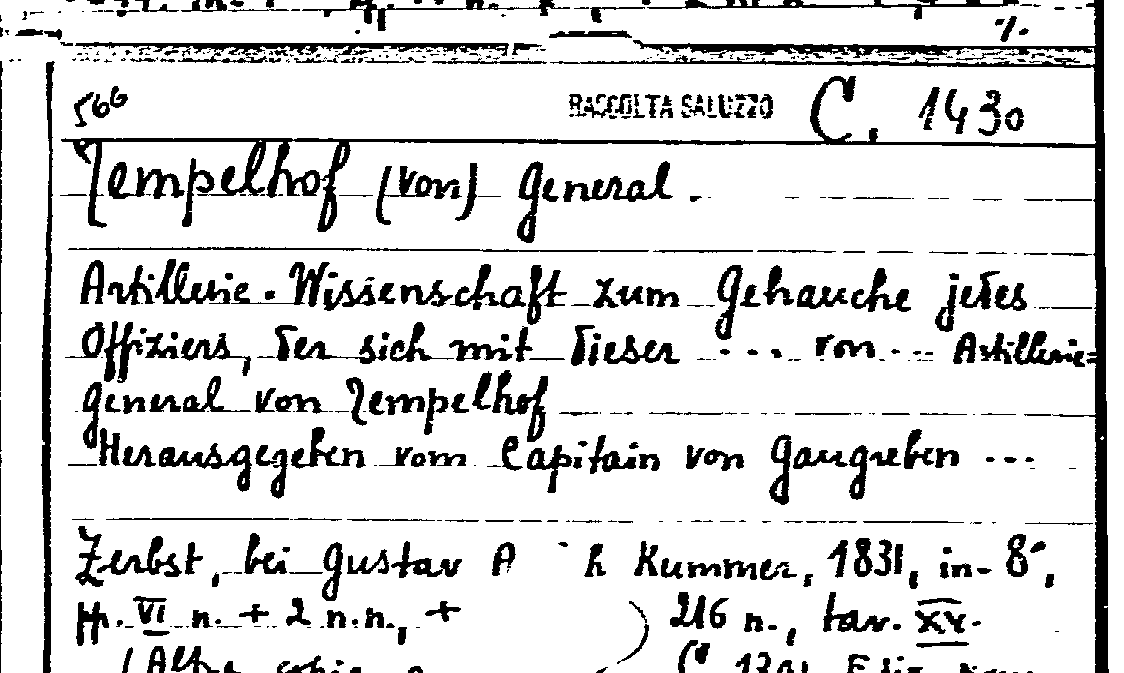 %.
566 RACCOLTA SALUZZO C. 1430
Tempelhof (von) General.
Artillerie-Wissenschaft zum Gehauche jedes
Offiziers, der sich mit dieser .... von ... Artillerie=
General von Tempelhof
Herausgegeben vom Capitain von Gaugreben ...
Zerbst, bei Gustav A h Kummer, 1831, in-8°,
pp. VI n. + 2 n.n., + ) 216 n., tav. XV.
(Altra copia